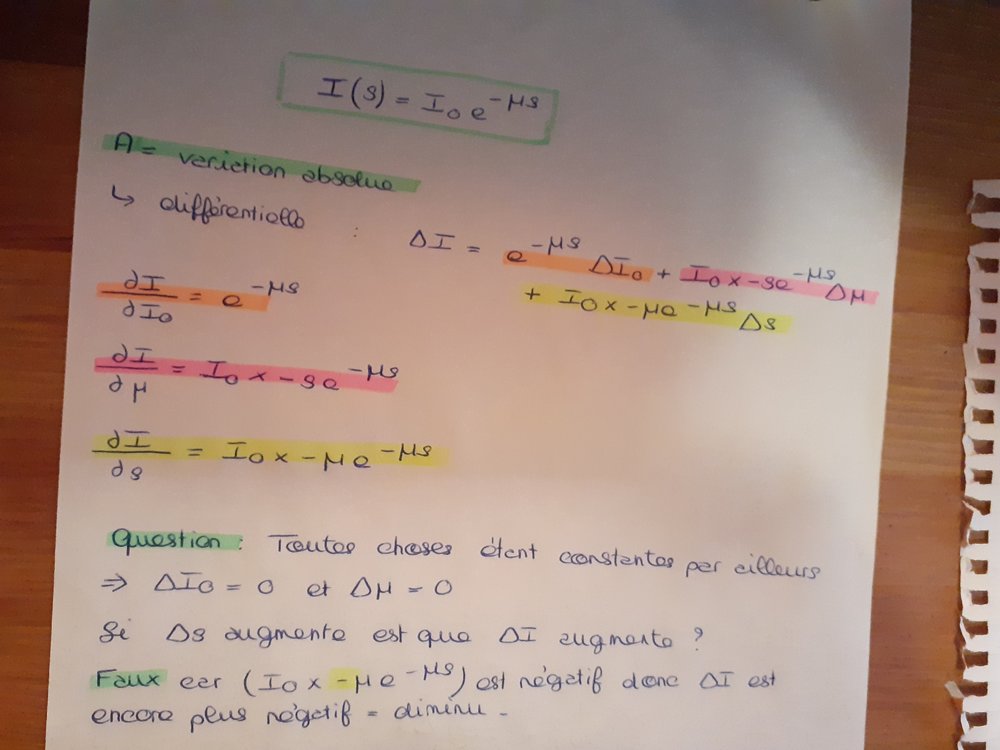 I(s) = I₀ e^-μs
A = variation absolue
↳ différentielle : ΔI = e^-μs ΔI₀ + I₀ x -se^-μs Δμ
+ I₀ x -μe^-μs Δs
∂I/∂I₀ = e^-μs
∂I/∂μ = I₀ x -se^-μs
∂I/∂s = I₀ x -μe^-μs
Question : Toutes choses étant constantes par ailleurs
⇒ ΔI₀ = 0 et Δμ = 0
Si Δs augmente est que ΔI augmente ?
Faux car (I₀ x -μe^-μs) est négatif donc ΔI est
encore plus négatif = diminu.